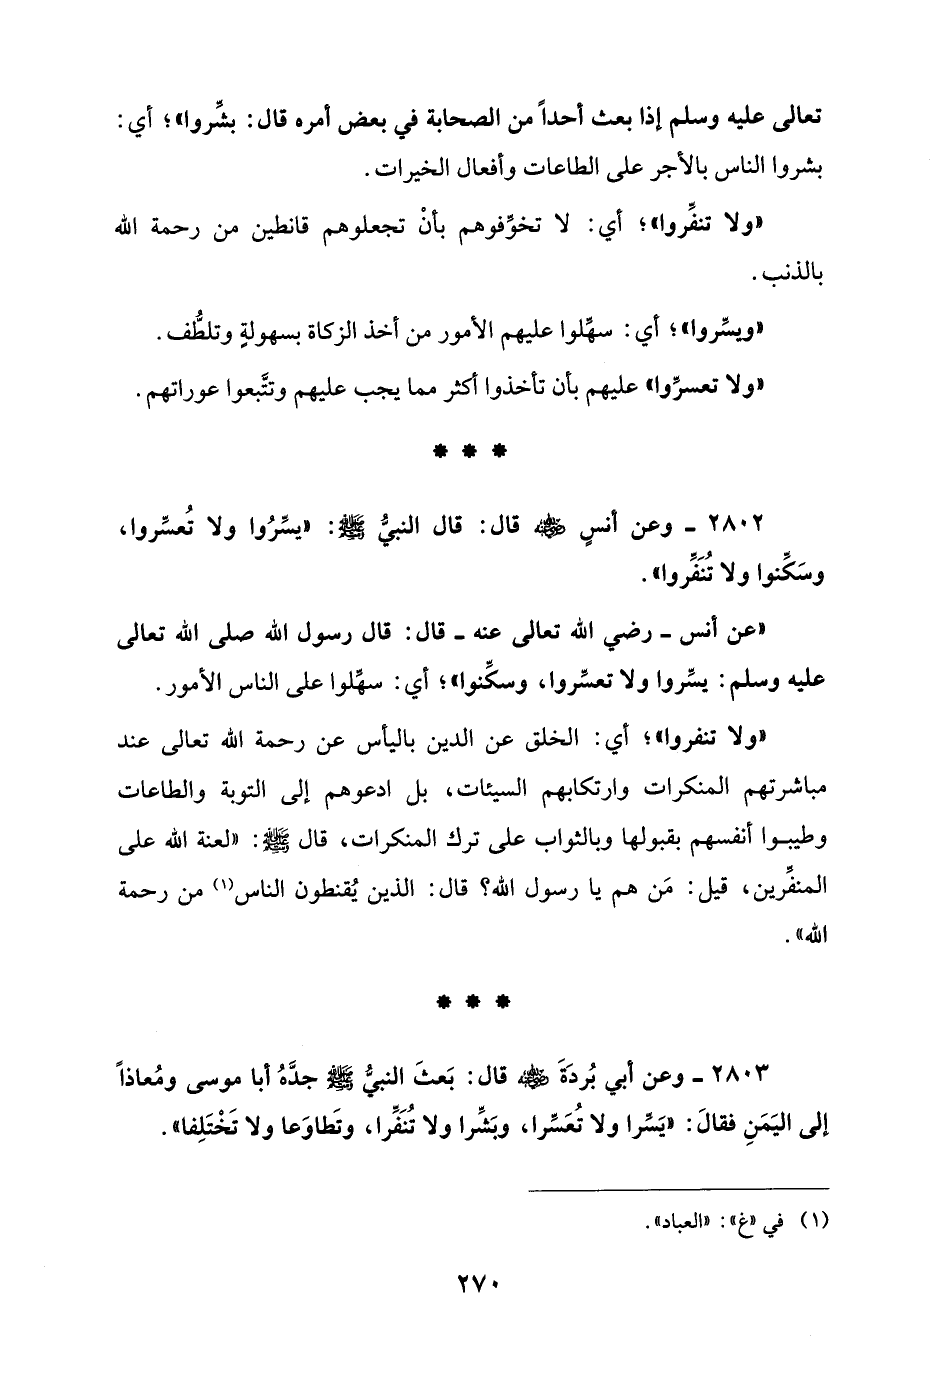 تعالى عليه وسلم إذا بعث أحداً من الصحابة في بعض أمره قال: بشِّروا»؛ أي:
بشروا الناس بالأجر على الطاعات وأفعال الخيرات.
«ولا تنفِّروا»؛ أي: لا تخوِّفوهم بأنْ تجعلوهم قانطين من رحمة الله
بالذنب.
«ويسِّروا»؛ أي: سهِّلوا عليهم الأمور من أخذ الزكاة بسهولةٍ وتلطُّف.
«ولا تعسرِّوا» عليهم بأن تأخذوا أكثر مما يجب عليهم وتتَّبعوا عوراتهم.
* * *
٢٨٠٢ - وعن أنسٍ ﵁ قال: قال النبيُّ ﷺ: «يسِّرُوا ولا تُعسِّروا،
وسَكِّنوا ولا تُنَفِّروا».
«عن أنس - رضي الله تعالى عنه - قال: قال رسول الله صلى الله تعالى
عليه وسلم: يسِّروا ولا تعسِّروا، وسكِّنوا»؛ أي: سهِّلوا على الناس الأمور.
«ولا تنفروا»؛ أي: الخلق عن الدين باليأس عن رحمة الله تعالى عند
مباشرتهم المنكرات وارتكابهم السيئات، بل ادعوهم إلى التوبة والطاعات
وطيبوا أنفسهم بقبولها وبالثواب على ترك المنكرات، قال ﷺ: «لعنة الله على
المنفِّرين، قيل: مَن هم يا رسول الله؟ قال: الذين يُقنطون الناس(١) من رحمة
الله».
* * *
٢٨٠٣ - وعن أبي بُردَةَ ﵁ قال: بَعثَ النبيُّ ﷺ جدَّهُ أبا موسى ومُعاذاً
إلى اليَمَنِ فقالَ: «يَسِّرا ولا تُعَسِّرا، وبَشِّرا ولا تُنَفِّرا، وتَطاوَعا ولا تَخْتَلِفا».
(١) في «غ»: «العباد».
٢٧٠